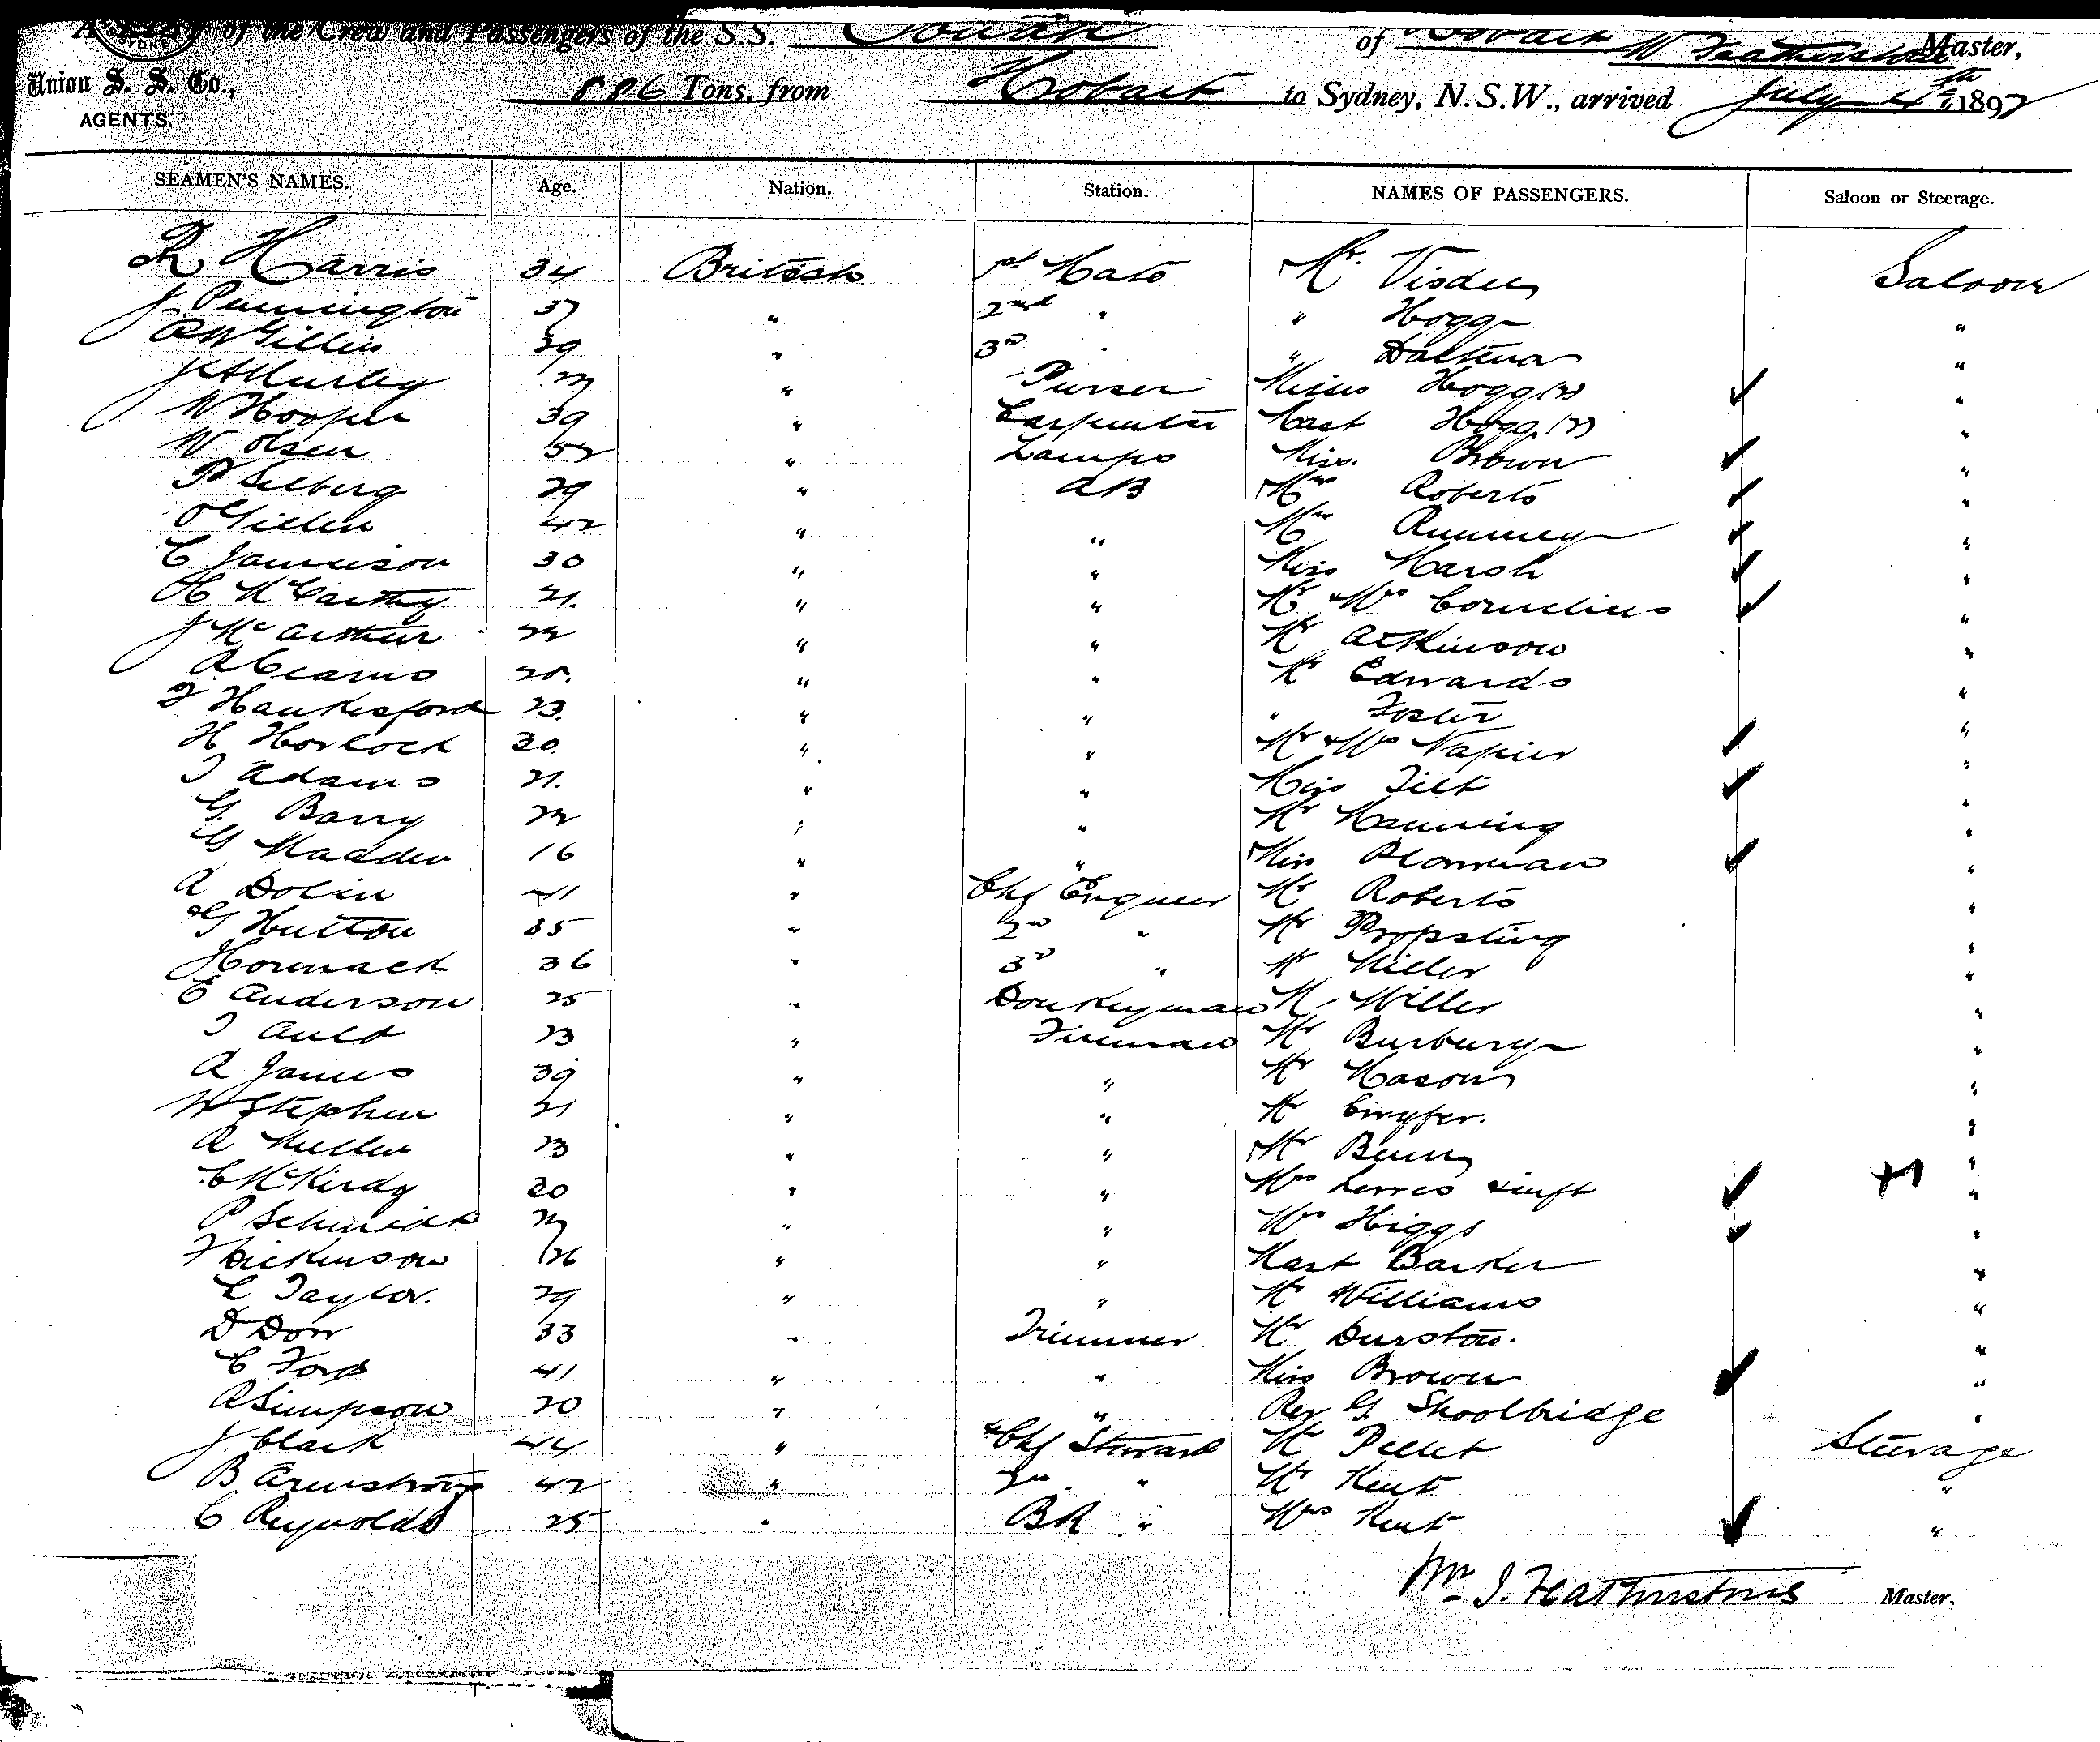 A List of the Crew and Passengers of the S.S. of Hobart W Featherstone Master,
Union S. S. Co., AGENTS. 886 Tons, from Hobart to Sydney, N.S.W., arrived July 4th, 1897
SEAMEN'S NAMES. Age. Nation. Station. NAMES OF PASSENGERS. Saloon or Steerage.
R Harris 34 British 1st Mate Mr. Saloon
J Pennington 37 " 2nd " " Hogg "
39 " 3rd " "
" Purser Misses Hogg (2) "
W Hooper 39 " Carpenter Mast Hogg (2) "
W Olsen 52 " Lamps Miss. Brown "
29 " AB Mrs Roberts "
42 " " Mrs Rumney "
C Jamieson 30 " " Miss Marsh "
H McCarthy 21. " " Mr & Mrs Cornelius "
J McArthur 22 " " Mr Atkinson "
" " Mr Edwards "
F Hawkesford 23. " " " Foster "
H Horlock 30. " " Mr & Mrs Napier "
T Adams 21. " " Miss Tilt "
G. Barry 22 " " Mr Manning "
G Madden 16 " " Miss Plowman "
A Dolin 41 " Chf Engineer Mr Roberts "
G Hutton 35 " 2nd " Mr Propsting "
36 " 3rd " Mr Miller "
E Anderson 25 " Donkeyman Mr Miller "
T Ault 23 " Fireman Mr Burbury "
A James 39 " " Mr Mason "
W Stephen 21 " " Mr
A Mullen 23 " " Mr "
C McKirdy 30 " " Mrs & inft "
P Schmidt 27 " " Mrs Higgs "
F Dickinson 26 " " Mast Barker "
L Taylor. 29 " " Mr Williams "
D Dow 33 " Trimmer Mr Durston. "
C Ford 41 " " Miss Brown "
A Simpson 20 " " Rev G. Shoolbridge "
J. Clark 44 " Chf Steward Mr Steerage
B Armstrong 42 " 2nd " Mr Kent "
C Reynolds 25 " BR " Mrs Kent "
Wm J. Featherstone Master.